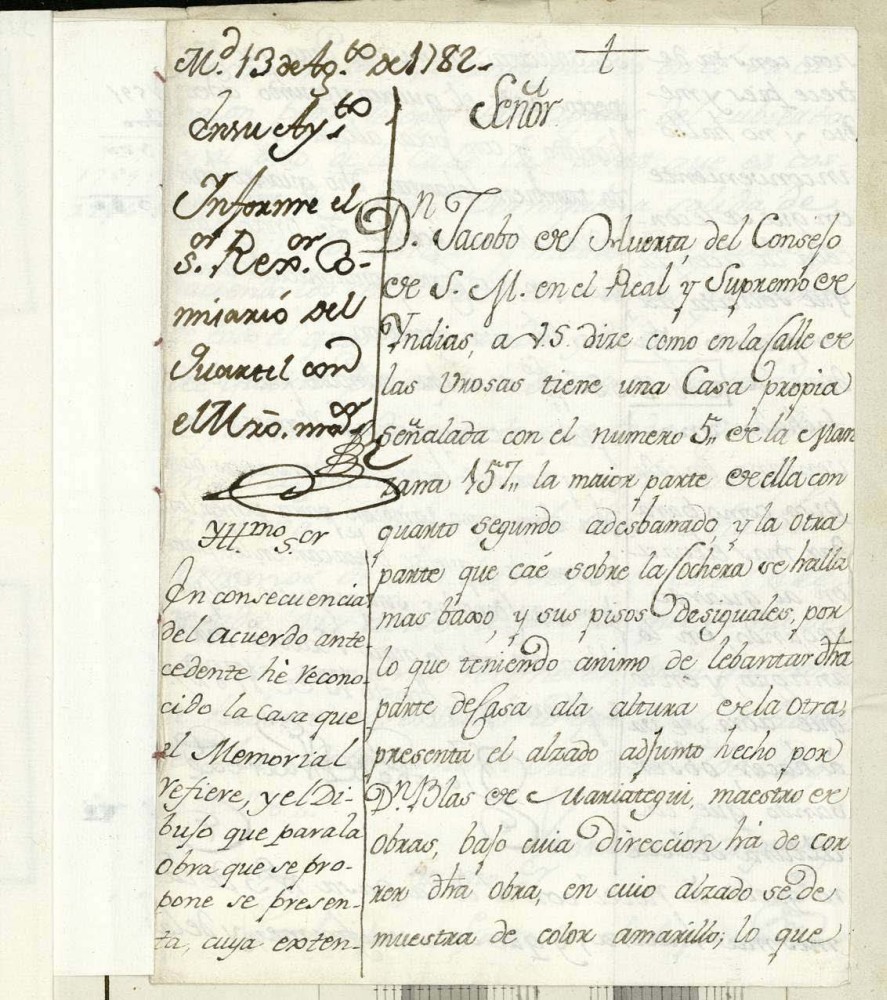 M.d 13 de Ag.to de 1782.
En su Ay.to
Informe el
s.or Rex.or Co-
misario del
Quartel con
el Mro. m.or
Yll.mo s.or
En consecuencia
del acuerdo ante
cedente hè recono-
cido la casa que
el Memorial
refiere, y el Di-
bujo que para la
obra que se pro-
pone se presen-
ta, cuya exten-
†
Señor
D.n Jacobo de Huerta del Consejo
de S. M. en el Real y Supremo de
Yndias, a V.S. dize como en la Calle de
las Urosas tiene una Casa propia
señalada con el numero 5,, de la Man
zana 157,, la maior parte de ella con
quarto segundo adesbanado, y la otra
parte que caé sobre la Cochera se halla
mas baxo y sus pisos desiguales, por
lo que teniendo animo de lebantar dha
parte de Casa ala altura de la otra,
presenta el alzado adjunto hecho por
D.n Blas de Mariategui, maestro de
obras, bajo cuia direccion há de cor
rer dha obra, en cuio alzado se de
muestra de color amarillo, lo que